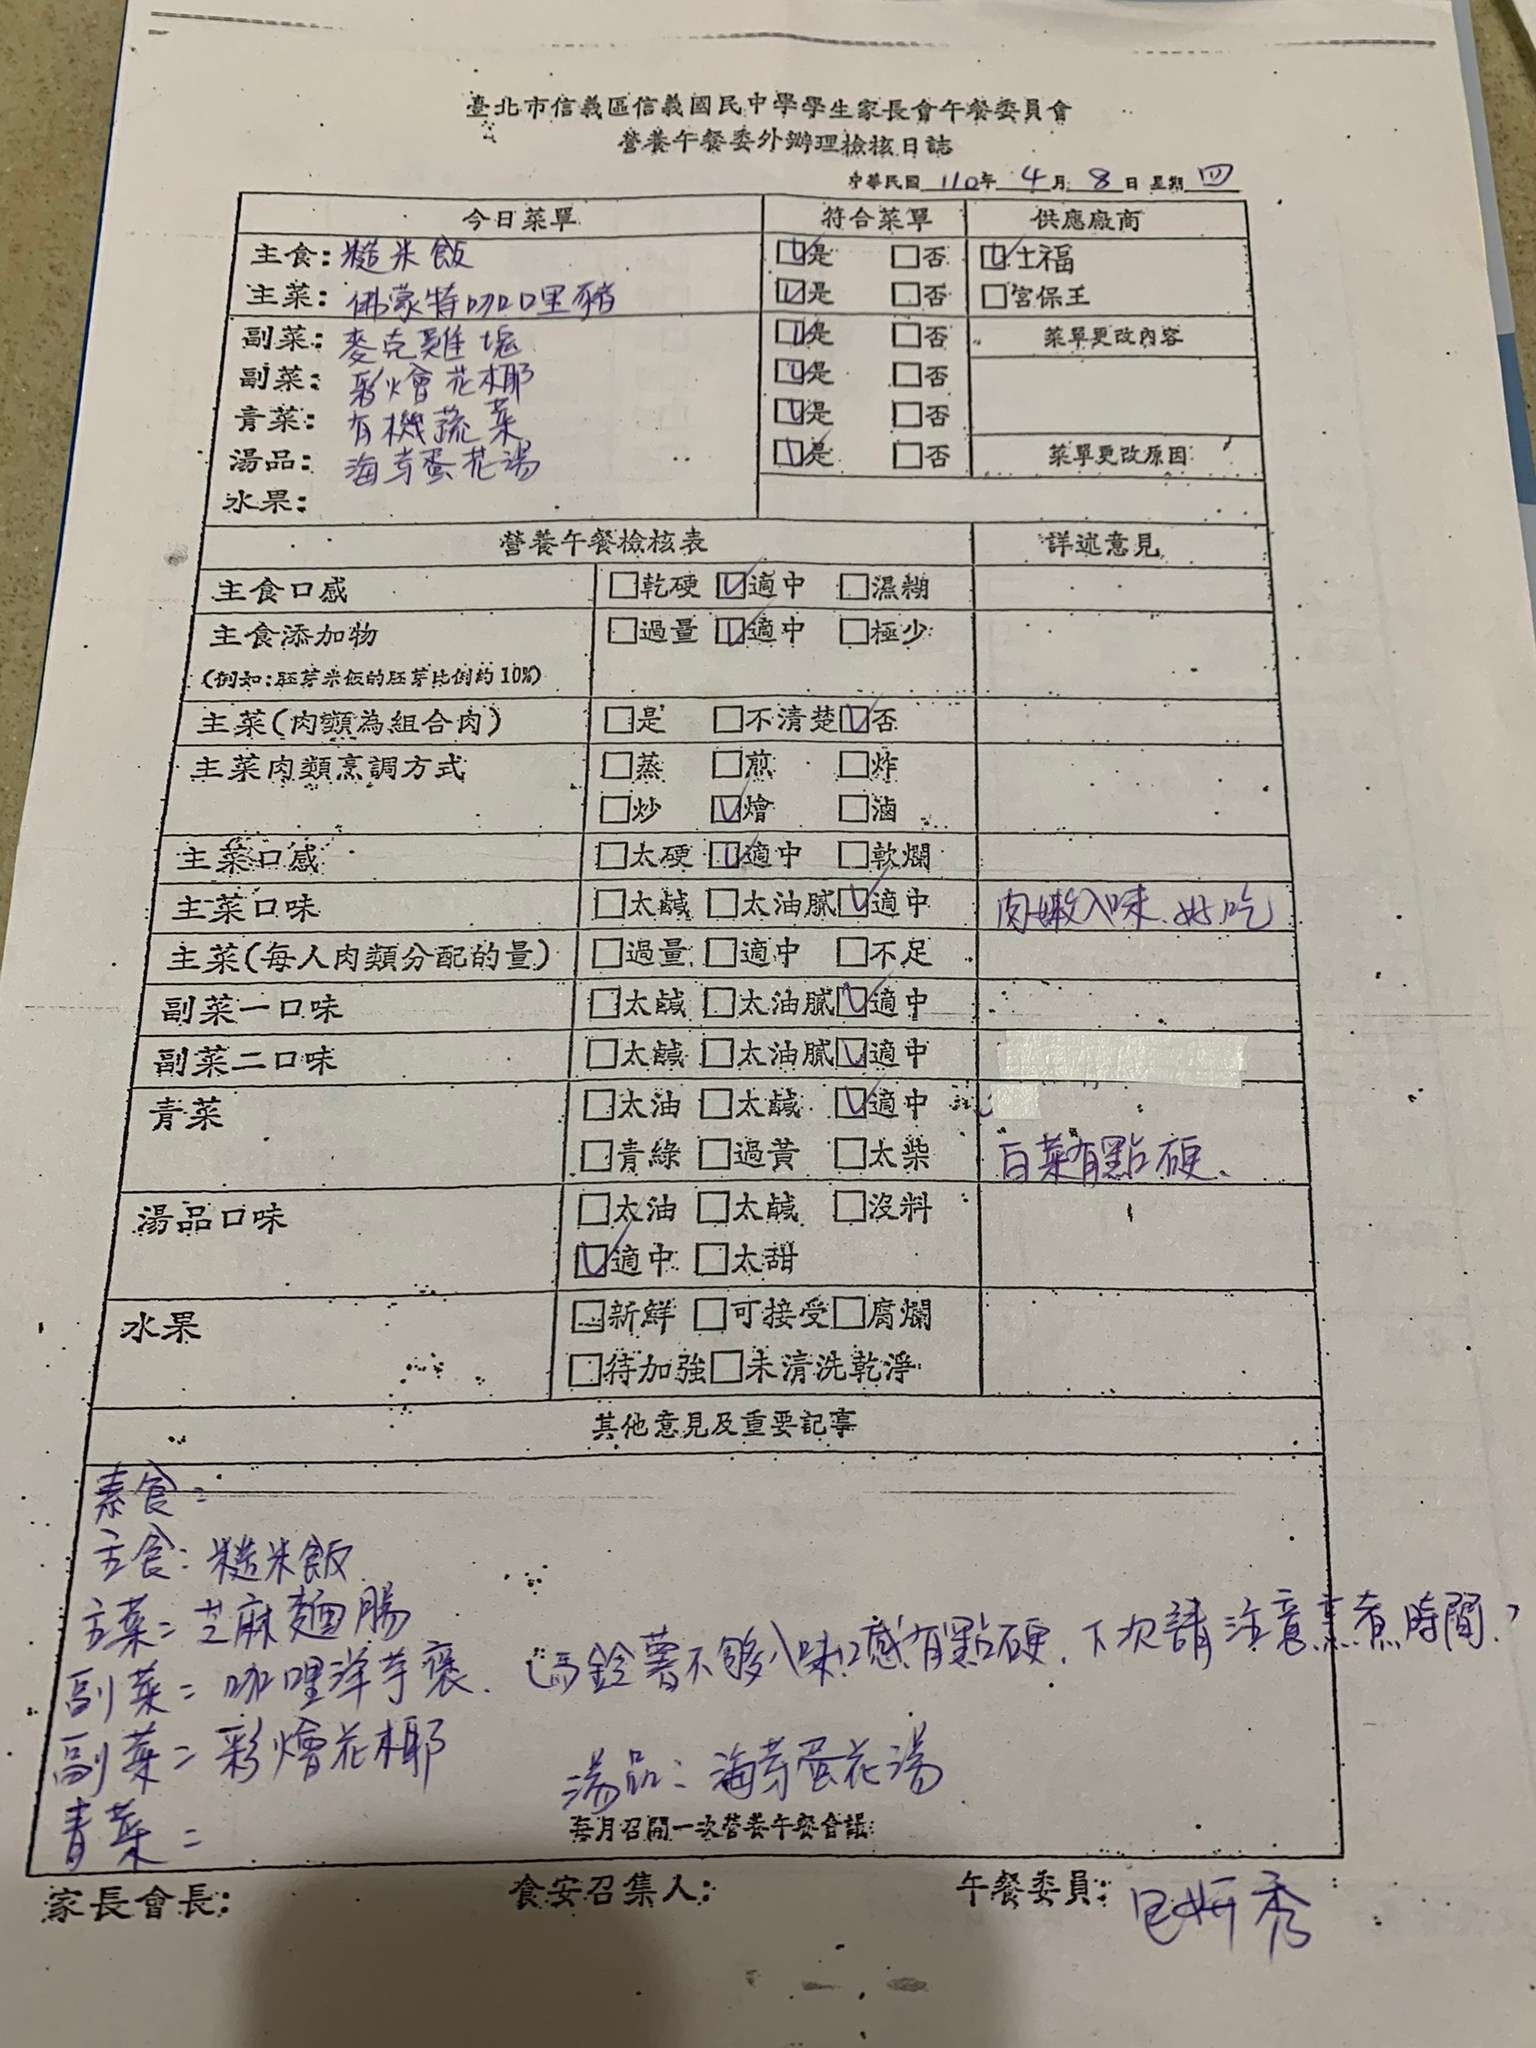 臺北市信義區信義國民中學學生家長會午餐委員會
營養午餐委外辦理檢核日誌
中華民國 110年 4月 8日 星期 四
今日菜單 符合菜單 供應廠商
主食：糙米飯 ☑是 □否 ☑士福
主菜：佛蒙特咖哩豬 ☑是 □否 □宮保王
副菜：麥克雞塊 ☑是 □否 菜單更改內容
副菜：彩燴花椰 ☑是 □否
青菜：有機蔬菜 ☑是 □否
湯品：海芽蛋花湯 ☑是 □否 菜單更改原因
水果：
營養午餐檢核表 詳述意見
主食口感 □乾硬 ☑適中 □濕糊
主食添加物 □過量 ☑適中 □極少
(例如：胚芽米飯的胚芽比例約10%)
主菜(肉類為組合肉) □是 □不清楚 ☑否
主菜肉類烹調方式 □蒸 □煎 □炸
□炒 ☑燴 □滷
主菜口感 □太硬 ☑適中 □軟爛
主菜口味 □太鹹 □太油膩 ☑適中 肉嫩入味、好吃
主菜(每人肉類分配的量) □過量 □適中 □不足
副菜一口味 □太鹹 □太油膩 ☑適中
副菜二口味 □太鹹 □太油膩 ☑適中
青菜 □太油 □太鹹 ☑適中
□青綠 □過黃 □太柴 白菜有點硬、
湯品口味 □太油 □太鹹 □沒料
☑適中 □太甜
水果 □新鮮 □可接受 □腐爛
□待加強 □未清洗乾淨
其他意見及重要記事
素食：
主食：糙米飯
主菜：芝麻麵腸
副菜：咖哩洋芋褒、馬鈴薯不夠入味口感有點硬、下次請注意烹煮時間、
副菜：彩燴花椰
湯品：海芽蛋花湯
青菜：
每月召開一次營養午餐會議
家長會長： 食安召集人： 午餐委員：包妍秀